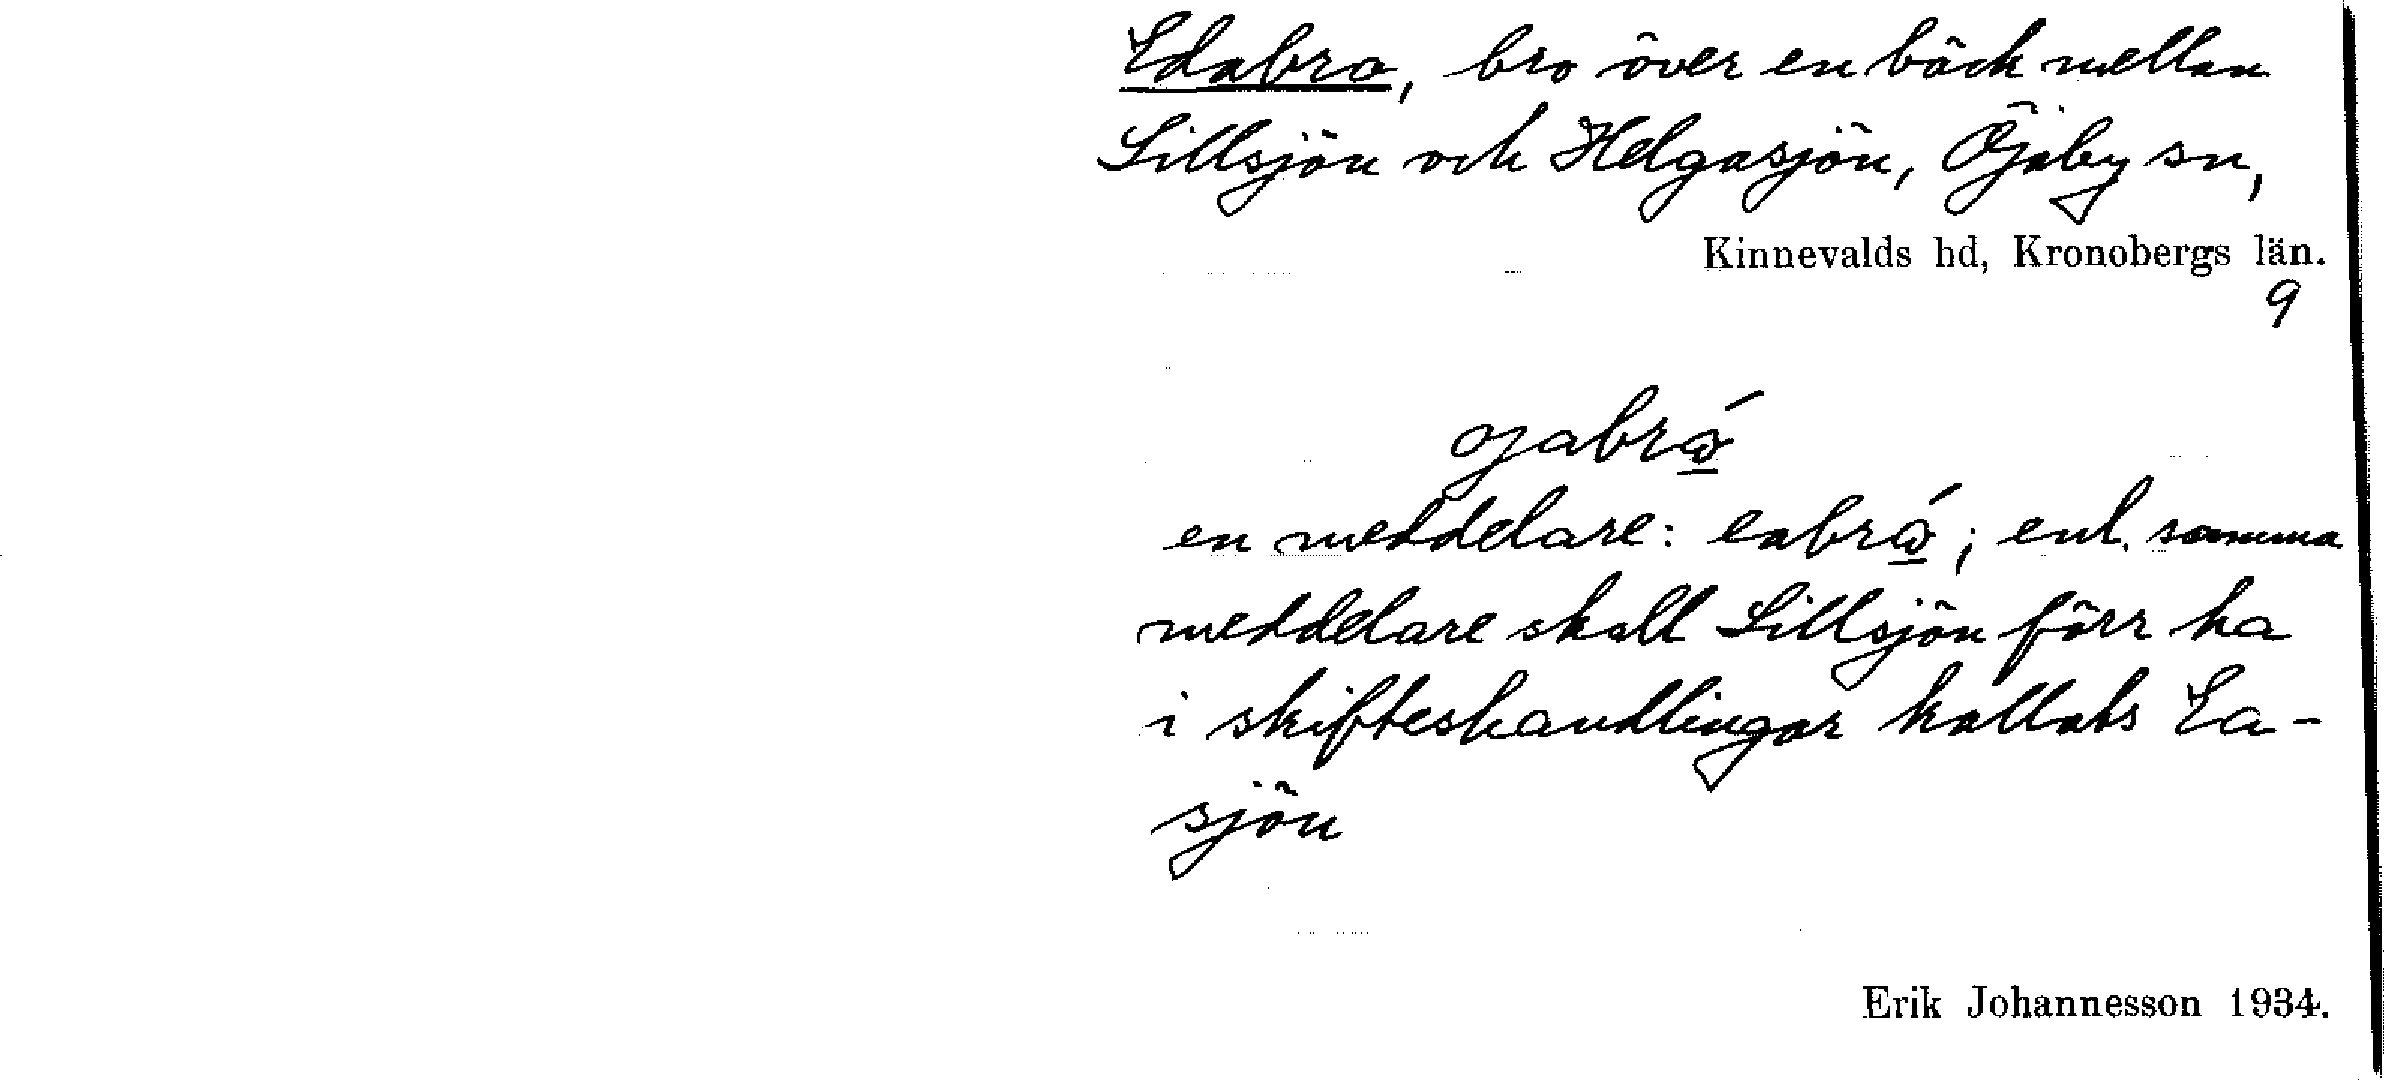 Edabro, bro över en bäck mellan
Lillsjön och Helgasjön, Öjaby sn,
Kinnevalds hd, Kronobergs län.
9
ojabró
en meddelare: eabró; enl. samma
meddelare skall Lillsjön förr ha
i skifteshandlingar kallats Ea-
sjön
Erik Johannesson 1934.